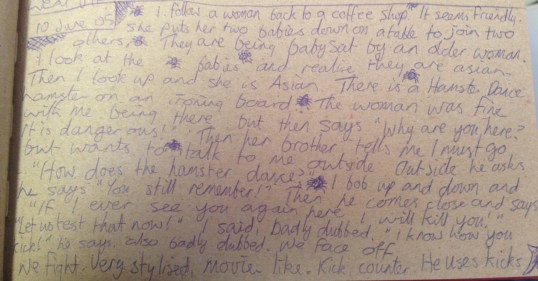 10 June 05 I follow a woman back to a coffee shop. It seems friendly.
she puts her two babies down on a table to join two
others. They are being babysat by an older woman.
I look at the babies and realise they are asian.
Then I look up and she is Asian. There is a Hamster Dance
hamster on an ironing board. The woman was fine
with me being there but then says "Why are you here?
It is dangerous!" Then her brother tells me I must go
but wants to talk to me outside. Outside he asks
"How does the hamster dance?" I bob up and down and
he says "You still remember!" Then he comes close and says
"If I ever see you again here, I will kill you."
"Let us test that now!" I said, badly dubbed. "I know how you
kick!" he says, also badly dubbed. We face off.
We fight. Very stylised, movie like. Kick, counter. He uses kicks